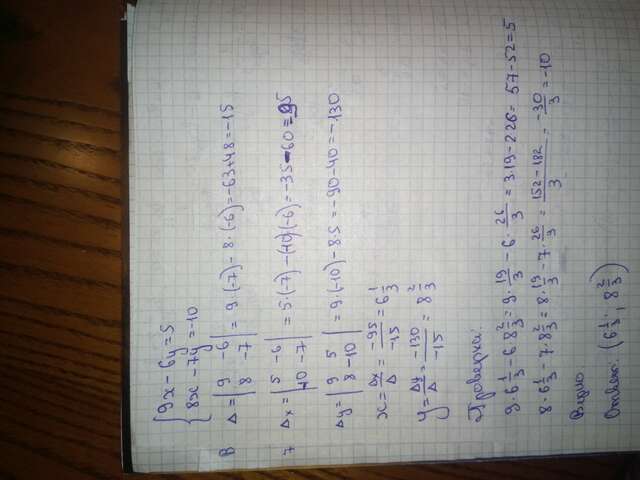 {9x - 6y = 5
8x - 7y = -10
В Δ = |9 -6; 8 -7| = 9·(-7) - 8·(-6) = -63+48 = -15
7 Δx = |5 -6; -10 -7| = 5·(-7) - (-10)·(-6) = -35-60 = -95
Δy = |9 5; 8 -10| = 9·(-10) - 8·5 = -90-40 = -130
x = Δx/Δ = -95/-15 = 6 1/3
y = Δy/Δ = -130/-15 = 8 2/3
Проверка:
9·6 1/3 - 6·8 2/3 = 9·19/3 - 6·26/3 = 3·19 - 2·26 = 57-52 = 5
8·6 1/3 - 7·8 2/3 = 8·19/3 - 7·26/3 = (152-182)/3 = -30/3 = -10
Верно.
Ответ: (6 1/3; 8 2/3)